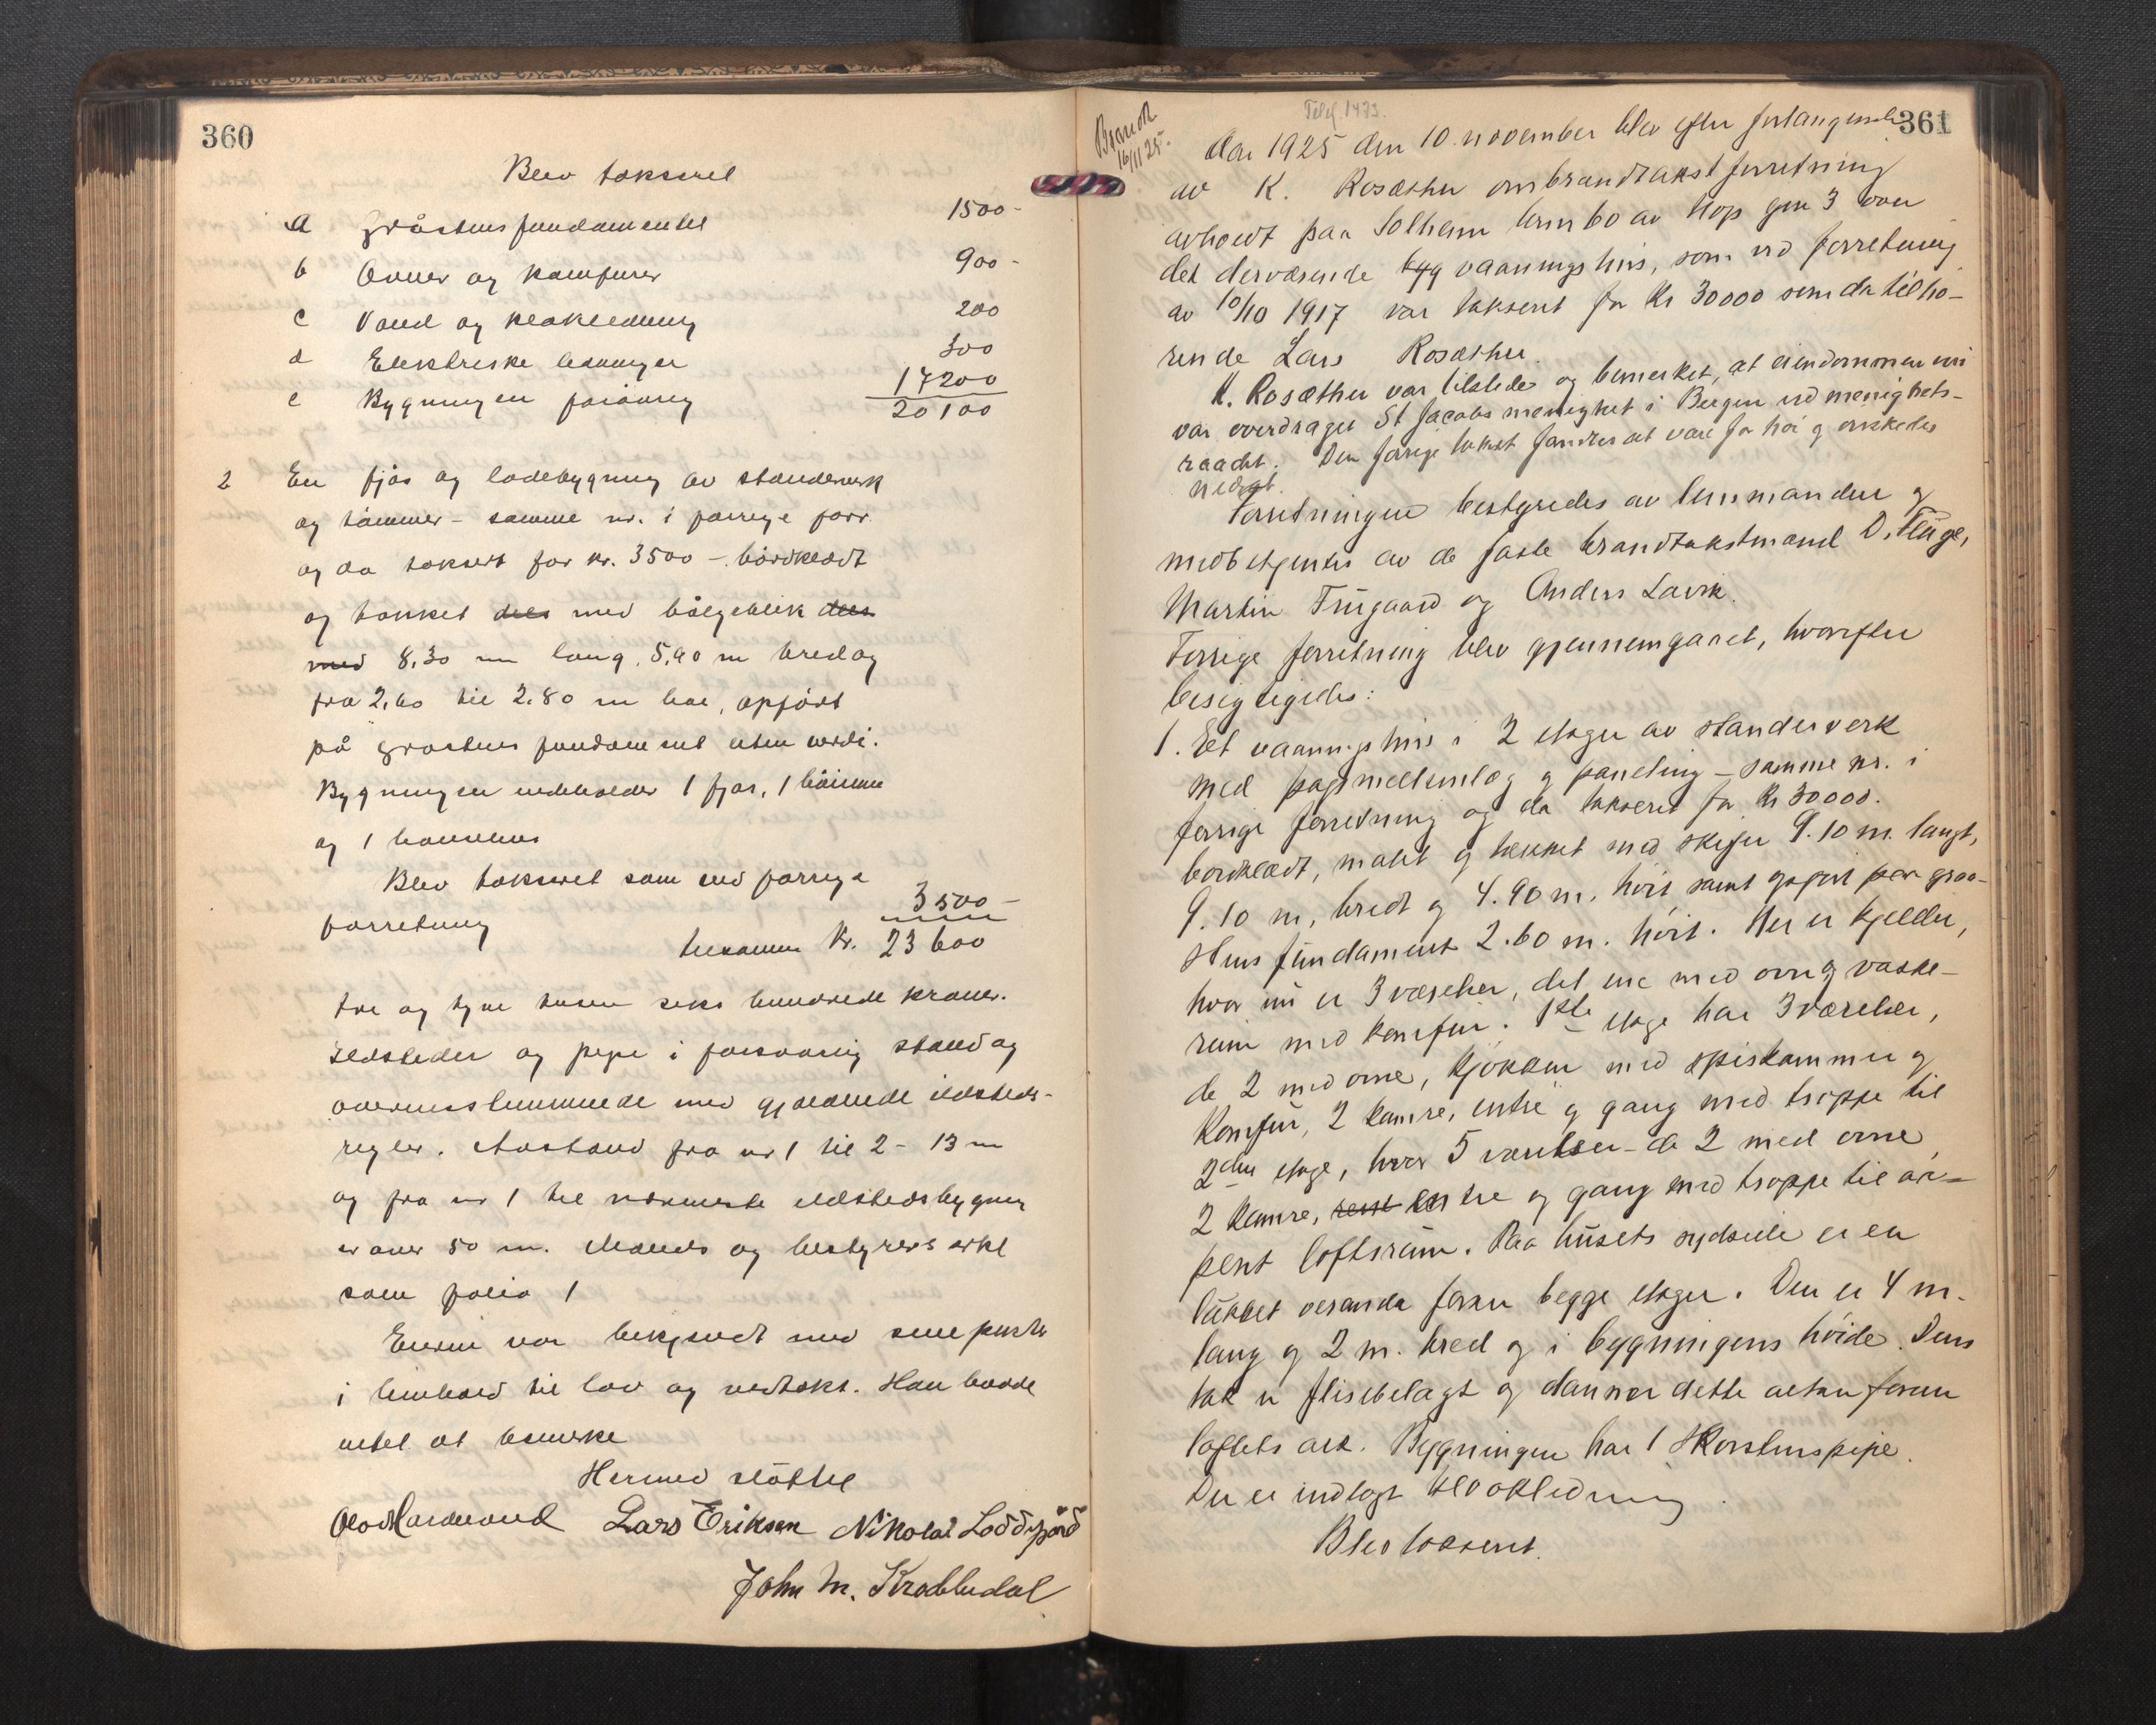 360
Blev taksert
a Gråstensfundamentet 1500-
b Ovner og komfurer 900-
c Vand og kloakledning 200
d Elektriske ledninger 300
e Bygningen forøvrig 17200
20100
2 En fjøs og ladebygning av stenderverk
og tømmer - samme nr. i forrige forr.
og da taksert for kr. 3500 - bordklædt
og tækket med bølgeblik
med 8,30 m lang, 5,90 m bred og
fra 2,60 til 2.80 m høi, opført
på gråstens fundament uten verdi.
Bygningen indeholder 1 fjøs, 1
og 1 hønsehus
Blev taksert som ved forrige
forretning 3500-
tilsammen Kr. 23600
tre og tyve tusen seks hundrede kroner.
Ildsteder og pipe i forsvarlig stand og
overensstemmende med gjældende ildsteds-
regler. Avstand fra nr 1 til 2 - 13 m
og fra nr 1 til nærmeste ildstedsbygning
er over 50 m. Mænds og bestyrers erkl
som folio 1
Eieren var bekjendt med sine pligter
i henhold til lov og vedtekt. Han hadde
intet at bemerke
Hermed sluttet
Lars Eriksen Nikolai Loddefjord
John M. Krabbedal
361
Telef. 1473.
Brandt
16/11 25.
Aar 1925 den 10. november blev efter forlangende
av K. Rosæther ombrandtakstforretning
avholdt paa Solheim brn 60 av Hop gn 3 over
det derværende byg vaaningshus, som ved forretning
av 10/10 1917 var taksert for Kr 30000 som da tilhø-
rende Lars Rosæther.
K. Rosæther var tilstede og bemerket, at eiendommen nu
var overdraget St Jacobs menighet i Bergen ved menighets-
raadet. Den forrige takst fandtes at være for høi og ønskedes
nedsat.
Forretningen bestyredes av lensmanden og
medbetjentes av de faste brandtakstmænd D. Fluge,
Martin Trugaard og Anders Lavik.
Forrige forretning blev gjennemgaaet, hvorefter
besigtigedes:
1. Et vaaningshus i 2 etager av standerverk
med papmellemlæg og paneling - samme nr. i
forrige forretning og da taksert for Kr 30000.
bordklædt, malet og tækket med skifer 9.10 m. langt,
9.10 m, bredt og 4.90 m. høit samt opført paa graa-
stens fundament 2.60 m. høit. Her er kjelder,
hvor nu er 3 værelser, det ene med ovn og vaske-
rum med komfur. 1ste etage har 3 værelser,
de 2 med ovne, kjøkken med spiskammer og
Komfur, 2 kamre, entre og gang med trappe til
2den etage, hvor 5 værelser - de 2 med ovne,
2 kamre, entre og gang med trappe til aa-
pent loftsrum. Paa husets sydside er en
lukket veranda foran begge etager. Den er 4 m.
lang og 2 m. bred og i bygningens høide. Dens
tak er flisebelagt og danner dette altan foran
loftets ark. Bygningen har 1 skorstenspipe.
Der er indlagt kloakledning.
Blev taksert.